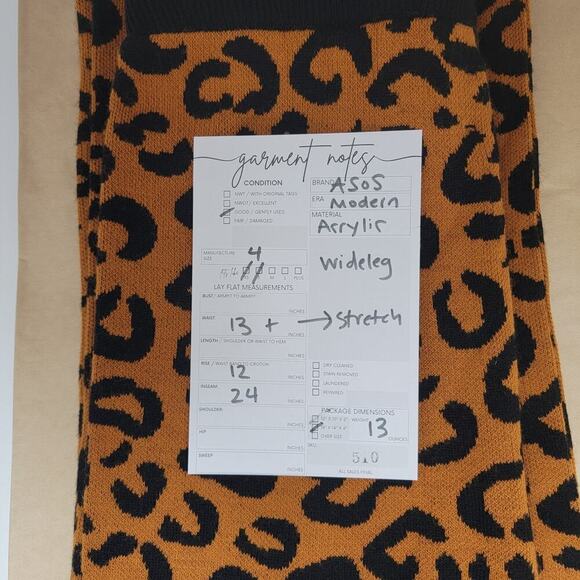 garment notes
CONDITION
NWT / WITH ORIGINAL TAGS
NWOT / EXCELLENT
GOOD / GENTLY USED
FAIR / DAMAGED
BRAND ASOS
ERA Modern
MATERIAL
Acrylic
MANUFACTURE SIZE 4
M L PLUS
Wideleg
LAY FLAT MEASUREMENTS
BUST / ARMPIT TO ARMPIT
INCHES
WAIST
13 + → Stretch
INCHES
LENGTH / SHOULDER OR WAIST TO HEM
INCHES
RISE / WAIST BAND TO CROTCH
12
INCHES
INSEAM:
24
INCHES
SHOULDER:
INCHES
HIP
INCHES
SWEEP
INCHES
DRY CLEANED
STAIN REMOVED
LAUNDERED
REPAIRED
PACKAGE DIMENSIONS
WEIGHT
13
OUNCES
OVER SIZE
SKU:
510
ALL SALES FINAL